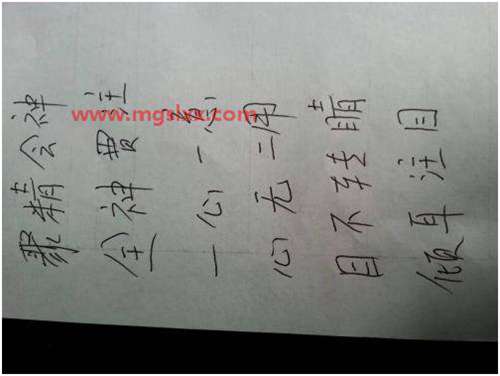 聚精会神
全神贯注
一心一意
心无二用
目不转睛
倾耳注目